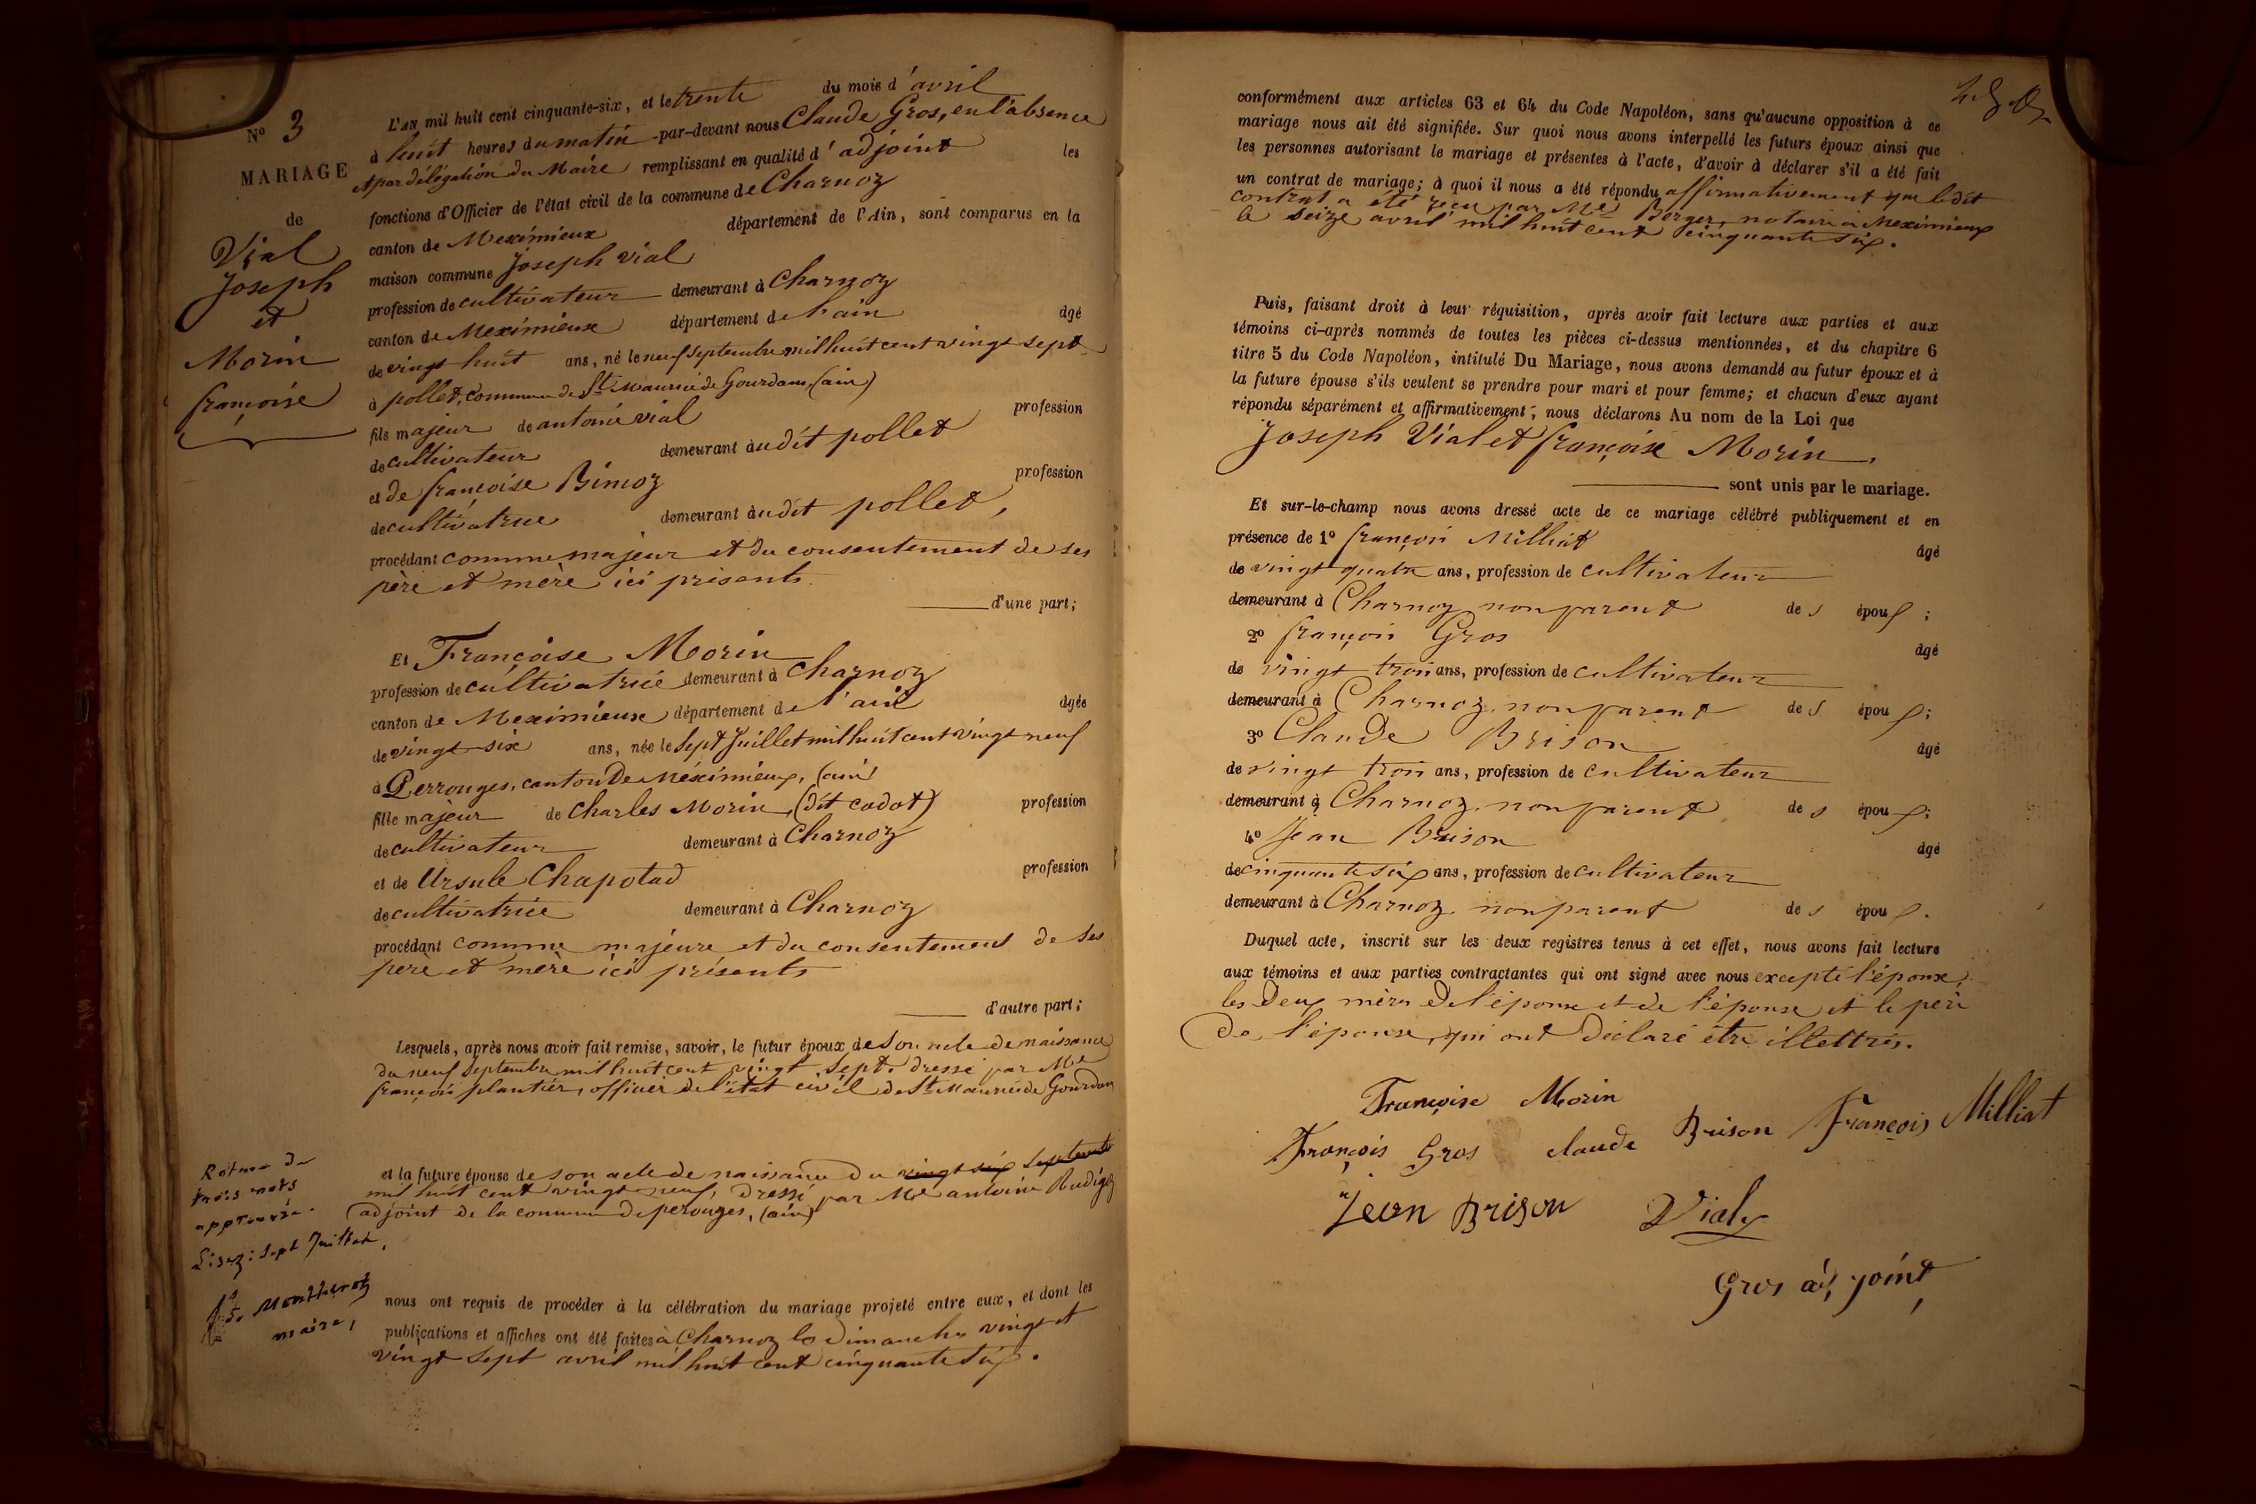 N° 3
MARIAGE
de
Vial
Joseph
et
Morin
françoise
L'AN mil huit cent cinquante-six, et le trente du mois d'avril
à huit heures du matin par-devant nous Claude Gros, en l'absence
et par délégation du Maire remplissant en qualité d'adjoint les
fonctions d'Officier de l'état civil de la commune de Charnoz
canton de Meximieux département de l'Ain, sont comparus en la
maison commune Joseph Vial
profession de cultivateur demeurant à Charnoz
canton de Meximieux département de l'ain âgé
de vingt huit ans, né le neuf septembre mil huit cent vingt sept
à pollet, commune de St. maurice de Gourdans, (ain)
fils majeur de antoine vial profession
de cultivateur demeurant àudit pollet
et de françoise Bimoz profession
de cultivatrice demeurant àudit pollet,
procédant comme majeur et du consentement de ses
père et mère ici présents.
d'une part;
Et Françoise Morin
profession de cultivatrice demeurant à Charnoz
canton de Meximieux département de l'ain âgée
de vingt-six ans, née le sept Juillet mil huit cent vingt neuf
à Perrouges, canton de Méximieux, (ain)
fille majeur de Charles Morin (dit cadot) profession
de cultivateur demeurant à Charnoz
et de Ursule Chapotad profession
de cultivatrice demeurant à Charnoz
procédant comme majeure et du consentement de ses
père et mère ici présents
d'autre part;
Lesquels, après nous avoir fait remise, savoir, le futur époux de son acte de naissance
du neuf septembre mil huit cent vingt sept. dressé par Me
françois plantier, officier de l'état civil de St. Maurice de Gourdans
et la future épouse de son acte de naissance du vingt six septembre
mil huit cent vingt neuf, dressé par Me antoine Rudigoz
adjoint de la commune de perouges, (ain)
Rature de
trois mots
approuvée.
Lisez: sept Juillet,
Montherot
maire,
nous ont requis de procéder à la célébration du mariage projeté entre eux, et dont les
publications et affiches ont été faites à Charnoz les dimanches vingt et
vingt sept avril mil huit cent cinquante six.
conformément aux articles 63 et 64 du Code Napoléon, sans qu'aucune opposition à ce
mariage nous ait été signifiée. Sur quoi nous avons interpellé les futurs époux ainsi que
les personnes autorisant le mariage et présentes à l'acte, d'avoir à déclarer s'il a été fait
un contrat de mariage; à quoi il nous a été répondu affirmativement que ledit
contrat a été reçu par Me Berger, notaire à Meximieux
le seize avril mil huit cent cinquante six.
Puis, faisant droit à leur réquisition, après avoir fait lecture aux parties et aux
témoins ci-après nommés de toutes les pièces ci-dessus mentionnées, et du chapitre 6
titre 5 du Code Napoléon, intitulé Du Mariage, nous avons demandé au futur époux et à
la future épouse s'ils veulent se prendre pour mari et pour femme; et chacun d'eux ayant
répondu séparément et affirmativement, nous déclarons Au nom de la Loi que
Joseph Vial et françoise Morin.
sont unis par le mariage.
Et sur-le-champ nous avons dressé acte de ce mariage célébré publiquement et en
présence de 1° françois Milliat âgé
de vingt quatre ans, profession de cultivateur
demeurant à Charnoz non parent des époux;
2° françois Gros âgé
de vingt trois ans, profession de cultivateur
demeurant à Charnoz non parent des époux;
3° Claude Brison âgé
de vingt trois ans, profession de cultivateur
demeurant à Charnoz non parent des époux;
4° Jean Brison âgé
de cinquante six ans, profession de cultivateur
demeurant à Charnoz non parent des époux.
Duquel acte, inscrit sur les deux registres tenus à cet effet, nous avons fait lecture
aux témoins et aux parties contractantes qui ont signé avec nous excepté l'épouse,
les deux mères de l'époux et de l'épouse et le père
de l'épouse, qui ont déclaré être illettrés.
Françoise Morin
François Gros claude Brison François Milliat
Jean Brison Vial
Gros adjoint,